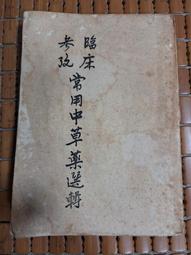 臨床
參攷
常用中草藥選輯